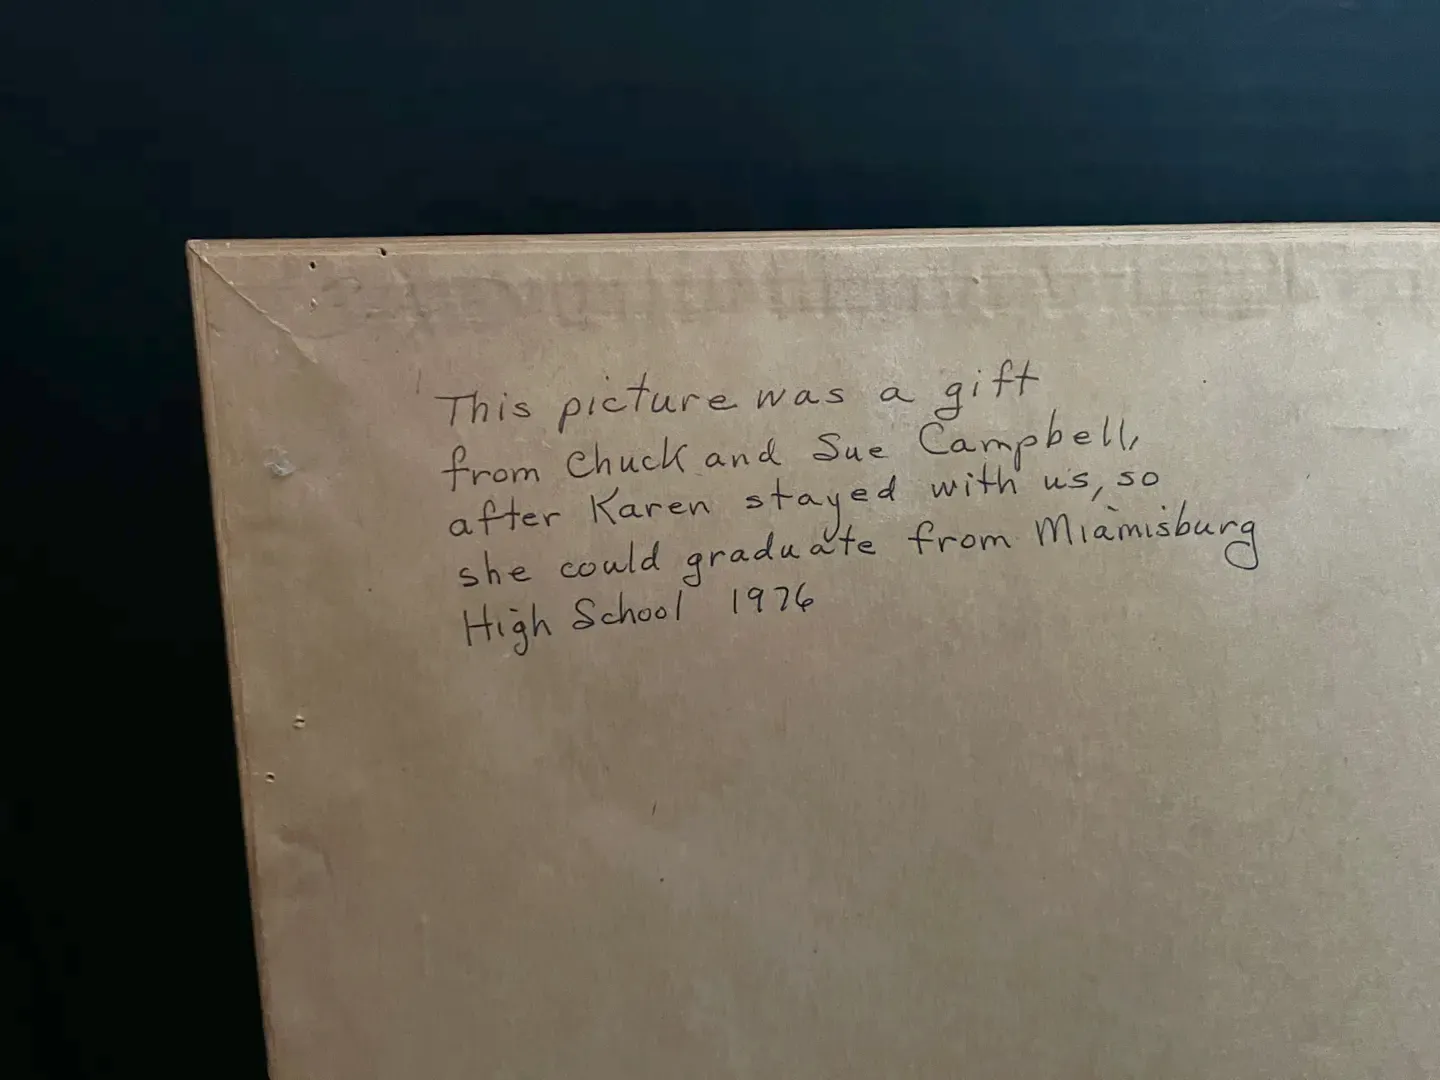 This picture was a gift
from Chuck and Sue Campbell,
after Karen stayed with us, so
she could graduate from Miamisburg
High School 1976